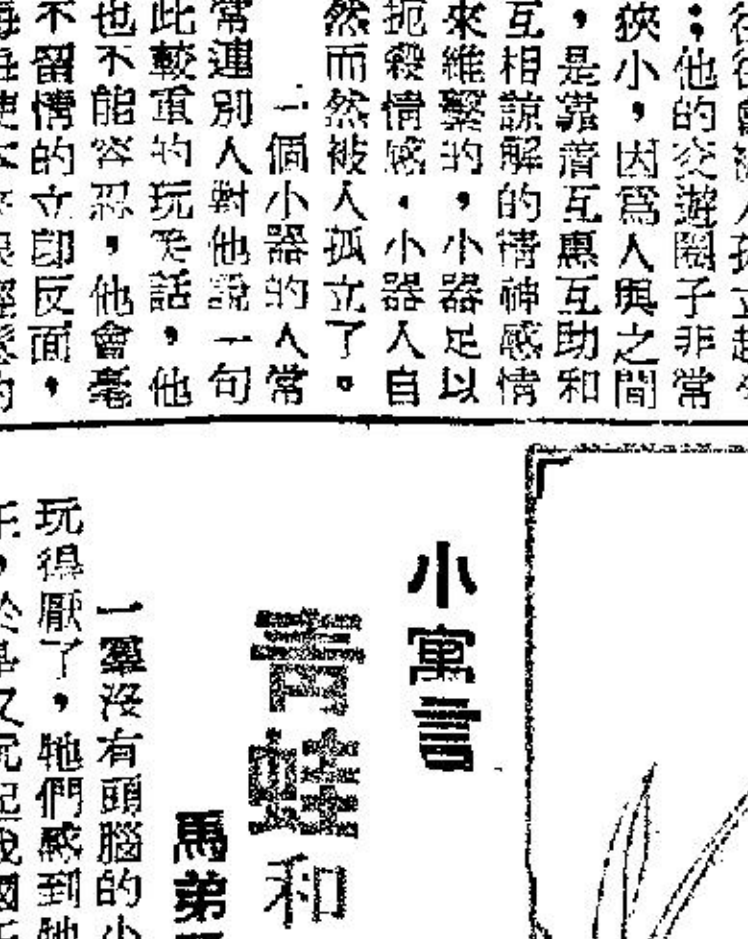 ：他的交遊圈子非常
狹小，因爲人與之間
，是靠着互惠互助和
互相諒解的精神感情
來維繫的，小器足以
扼殺情感．小器人自
然而然被人孤立了。
一個小器的人常
常連別人對他說一句
比較重的玩笑話，他
也不能容忍，他會毫
不留情的立卽反面，
小寓言
青蛙和
馬弟
一羣沒有頭腦的小
玩得厭了，牠們感到牠